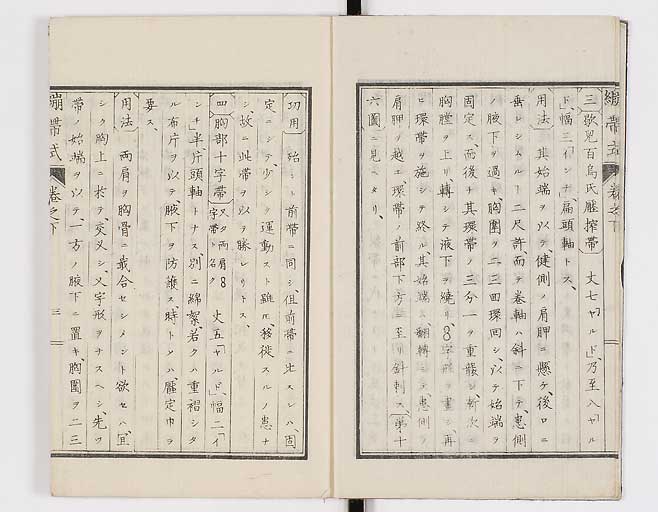 三 歇児百烏氏壓搾帶 丈七「ヤルド」乃至八「ヤル
ド」幅三「インチ」扁頭軸トス、
用法 其始端ヲ以テ健側ノ肩胛ニ懸ケ、後口ニ
垂レシムル一二尺許而テ巻軸ハ斜ニ下テ患側
ノ腋下ヲ過キ、胸圍ヲ二三四環回シ、以テ始端ヲ
固定ス、而後チ其環帶ノ三分一ヲ重襲シ、漸次ニ
胸膛ヲ上リ、轉シテ液下ヲ繞リ、8字形ヲ畫シ、再
ヒ環帶ヲ施シテ終ル、其始端ハ翻轉シテ患側ノ
肩胛ヲ越エ、環帶ノ前部下方ニ至リ斜刺ス、第十
六圖ニ見ヘタリ、
繃帶式 巻之下
功用 殆ント前帶ニ同シ、但前帶ニ比スレハ、固
定ニシテ、少シク運動スト雖モ、移徙スルノ患ナ
シ、故ニ此帶ヲ以テ勝レリトス、
四 胸部十字帶 又タ両肩8字帶ト名ク 丈五「ヤルド」幅二「イ
ンチ」半片頭軸トナス別ニ綿絮、若クハ重褶シタ
ル布片ヲ以テ、腋下ヲ防護ス、時トシテハ壓定巾ヲ
要ス、
用法 両肩ヲ胸骨ニ戴合セシメント欲セハ、宜
シク胸上ニ於ヲ、交叉シ、乂字形ヲナスヘシ、先ツ
帶ノ始端ヲ以テ一方ノ腋下ニ置キ胸圍ヲ二三
繃帶式 巻之下 三